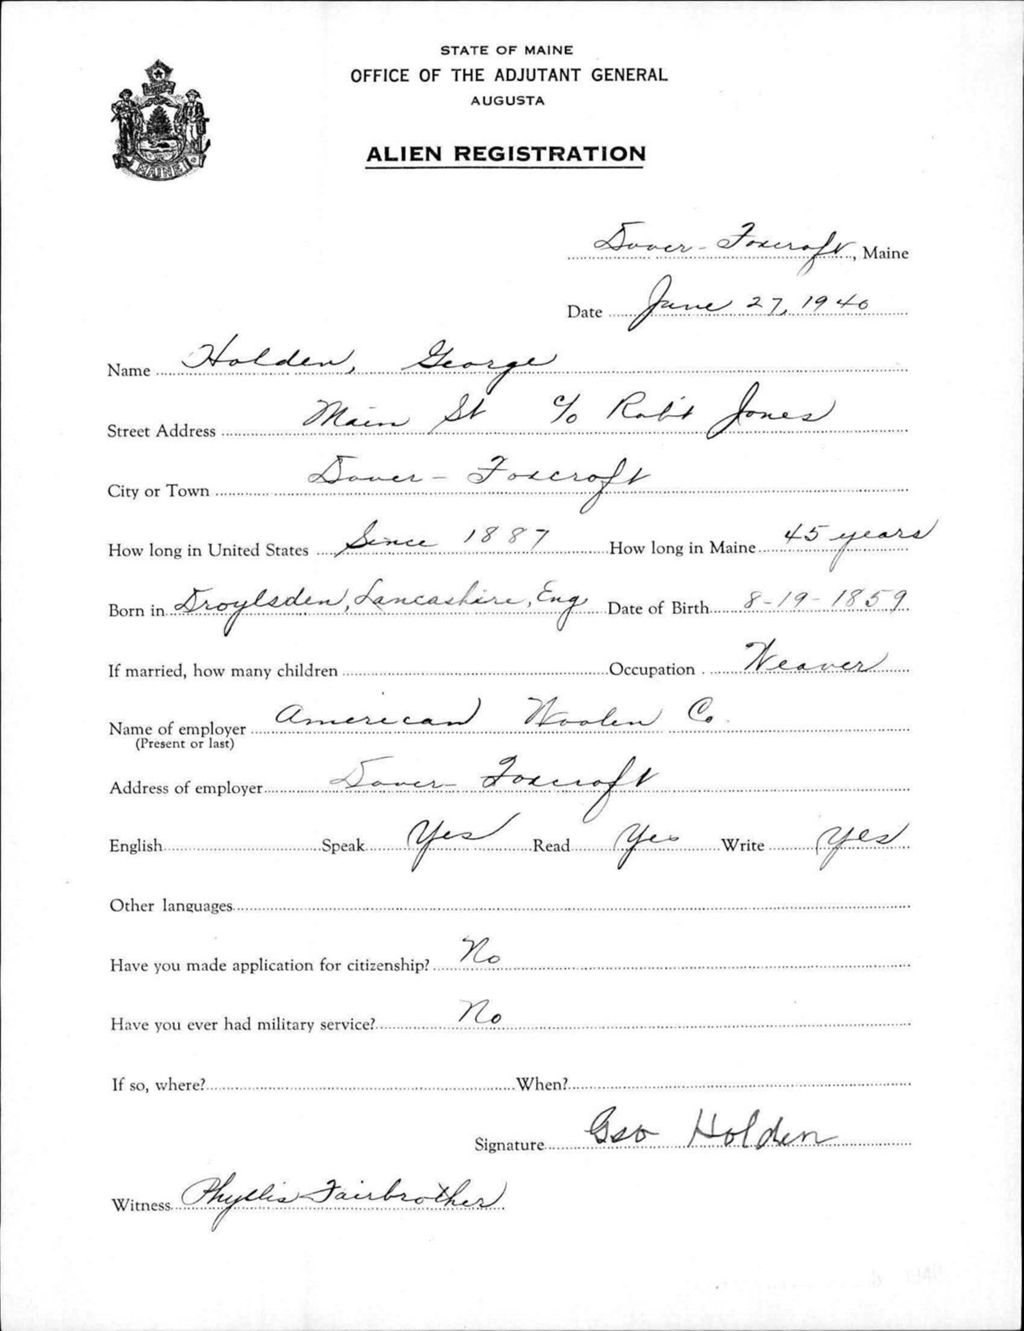 STATE OF MAINE
OFFICE OF THE ADJUTANT GENERAL
AUGUSTA
ALIEN REGISTRATION
MAINE
Dover-Foxcroft, Maine
Date June 27, 1940
Name Holden, George
Street Address Main St c/o Rob't Jones
City or Town Dover-Foxcroft
How long in United States Since 1887 How long in Maine 45 years
Born in Droylsden, Lancashire, Eng Date of Birth 8-19-1859
If married, how many children Occupation Weaver
Name of employer American Woolen Co.
(Present or last)
Address of employer Dover-Foxcroft
English Speak Yes Read Yes Write Yes
Other languages
Have you made application for citizenship? No
Have you ever had military service? No
If so, where? When?
Signature Geo Holden
Witness Phyllis Fairbrother